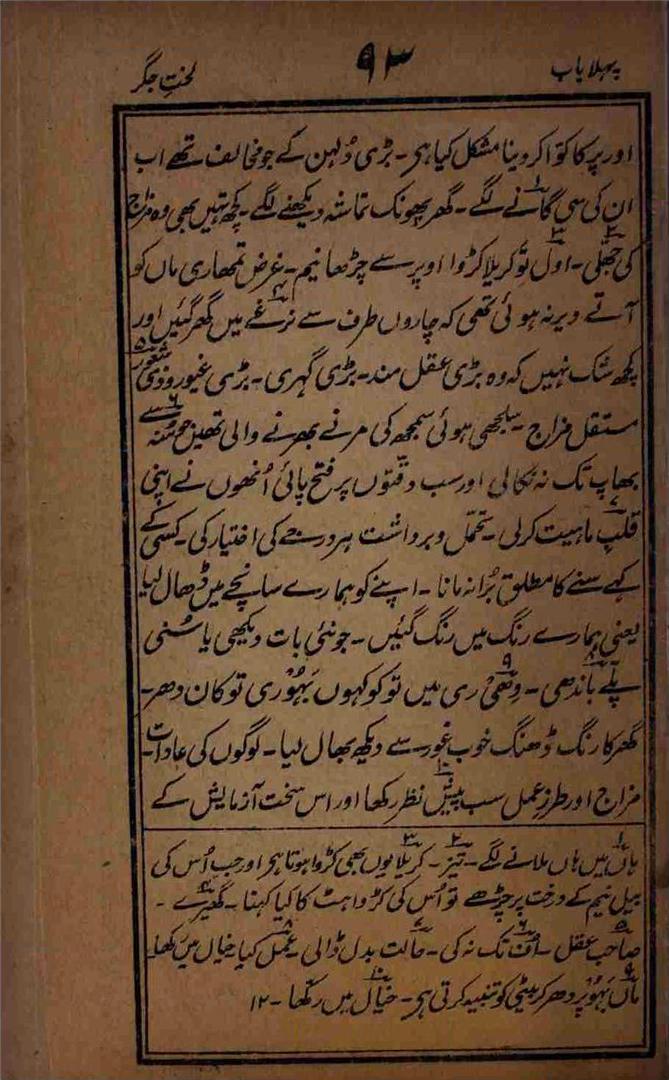 پہلا باب ۹۳ لختِ جگر
اور پر کا کوّا کر دینا مشکل کیا ہی۔ بڑی دُلہن کے جو مخالف تھے اب
ان کی سی گانے۱ لگے۔ گھر پھونک تماشہ دیکھنے لگے۔ کچھ تہیں بھی وہ مزاج
کی جھلّی۲۔ اول۳ تو کریلا کڑوا اوپر سے چڑھا نیم۔ غرض تمھاری ماں کو
آتے دیر نہ ہوئی تھی کہ چاروں طرف سے نرغے۴ میں گھر گئیں اور
کچھ شک نہیں کہ وہ بڑی عقل مند۔ بڑی گہری۔ بڑی غیور و ذی شعور۵
مستقل مزاج۔ سلجھی ہوئی سمجھ کی مرنے بھرنے والی تھیں مُنہ سے۶
بھاپ تک نہ نکالی اور سب دقتوں پر فتح پائی اُنھوں نے اپنی
قلبِ۷ ماہیت کر لی۔ تحمّل و برداشت ہر درجے کی اختیار کی۔ کسی کے
کہے سنے کا مطلق بُرا نہ مانا۔ اپنے کو ہمارے سانچے میں ڈھال لیا
یعنی ہمارے رنگ میں رنگ گئیں۔ جو نئی بات دیکھی یا سُنی
پلّے باندھی۸۔ دِھی۹ ری میں تو کو کہوں بَہُو ری تو کان دھر۔
گھر کا رنگ ڈھنگ خوب غور سے دیکھ بھال لیا۔ لوگوں کی عادات
مزاج اور طرزِ عمل سب پیشِ۱۰ نظر رکھا اور اس سخت آزمایش کے
۱ ہاں میں ہاں ملانے لگے۔ ۲ تیز۔ ۳ کریلا یوں بھی کڑوا ہوتا ہی اور جب اُس کی
بیل نیم کے درخت پر چڑھے تو اُس کی کڑواہٹ کا کیا کہنا۔ ۴ گھیرے۔
۵ صاحب عقل۔ ۶ اُف تک نہ کی۔ ۷ حالت بدل ڈالی۔ ۸ عمل کیا خیال میں رکھا۔
۹ ماں بَہُو پر دھر کر بیٹی کو تنبیہ کرتی ہی۔ ۱۰ خیال میں رکھا۔ ۱۲